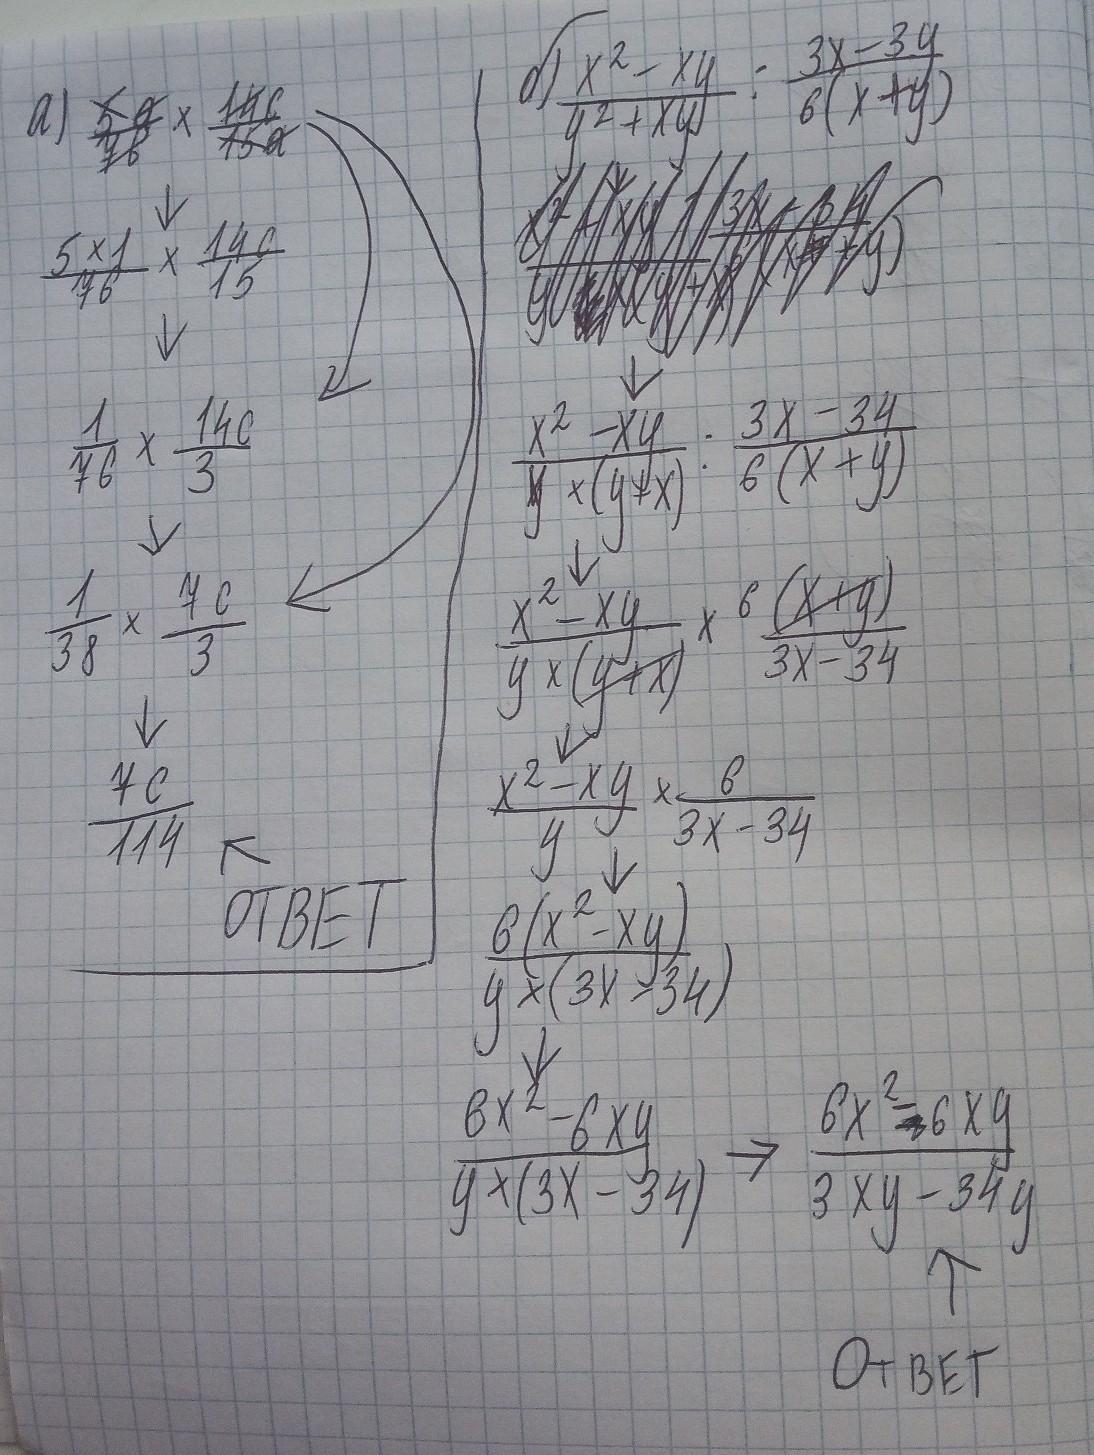 а) 5a/76 × 14c/15a
↓
5×1/76 × 14c/15
↓
1/76 × 14c/3
↓
1/38 × 7c/3
↓
7c/114
ОТВЕТ
б) x² – xy / y² + xy : 3x – 3y / 6(x+y)
↓
x² – xy / y × (y+x) : 3x – 34 / 6(x+y)
↓
x² – xy / y × (y+x) × 6(x+y) / 3x – 34
↓
x² – xy / y × 6 / 3x – 34
↓
6(x² – xy) / y × (3x – 34)
↓
6x² – 6xy / y × (3x – 34) → 6x² – 6xy / 3xy – 34y
↑
ОТВЕТ